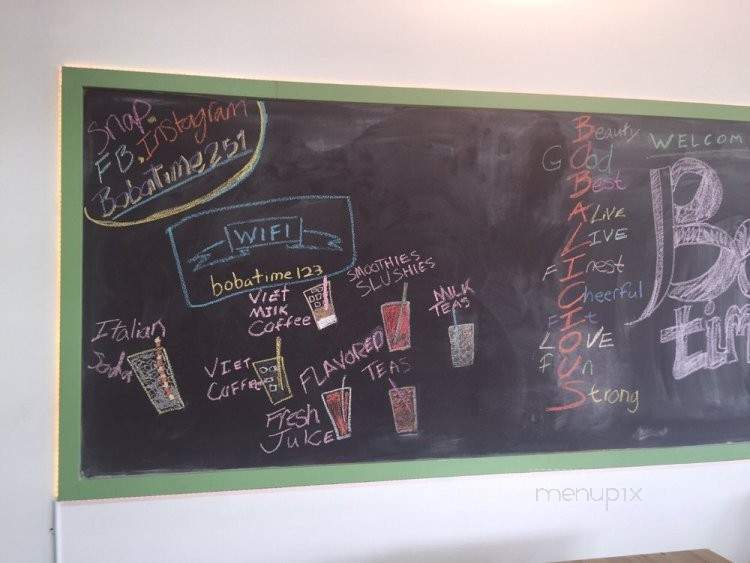 Snap.
FB.Instagram
BobaTime251
WIFI
bobatime123
VIET
MILK
Coffee
SMOOTHIES
SLUSHIES
MILK
TEAS
Italian
Soda
VIET
Coffee
FLAVORED
TEAS
Fresh
Juice
Beauty
GOod
Best
ALiVE
LIVE
FInest
Cheerful
LOVE
FUn
Strong
WELCOM
Bo
tim
menupix